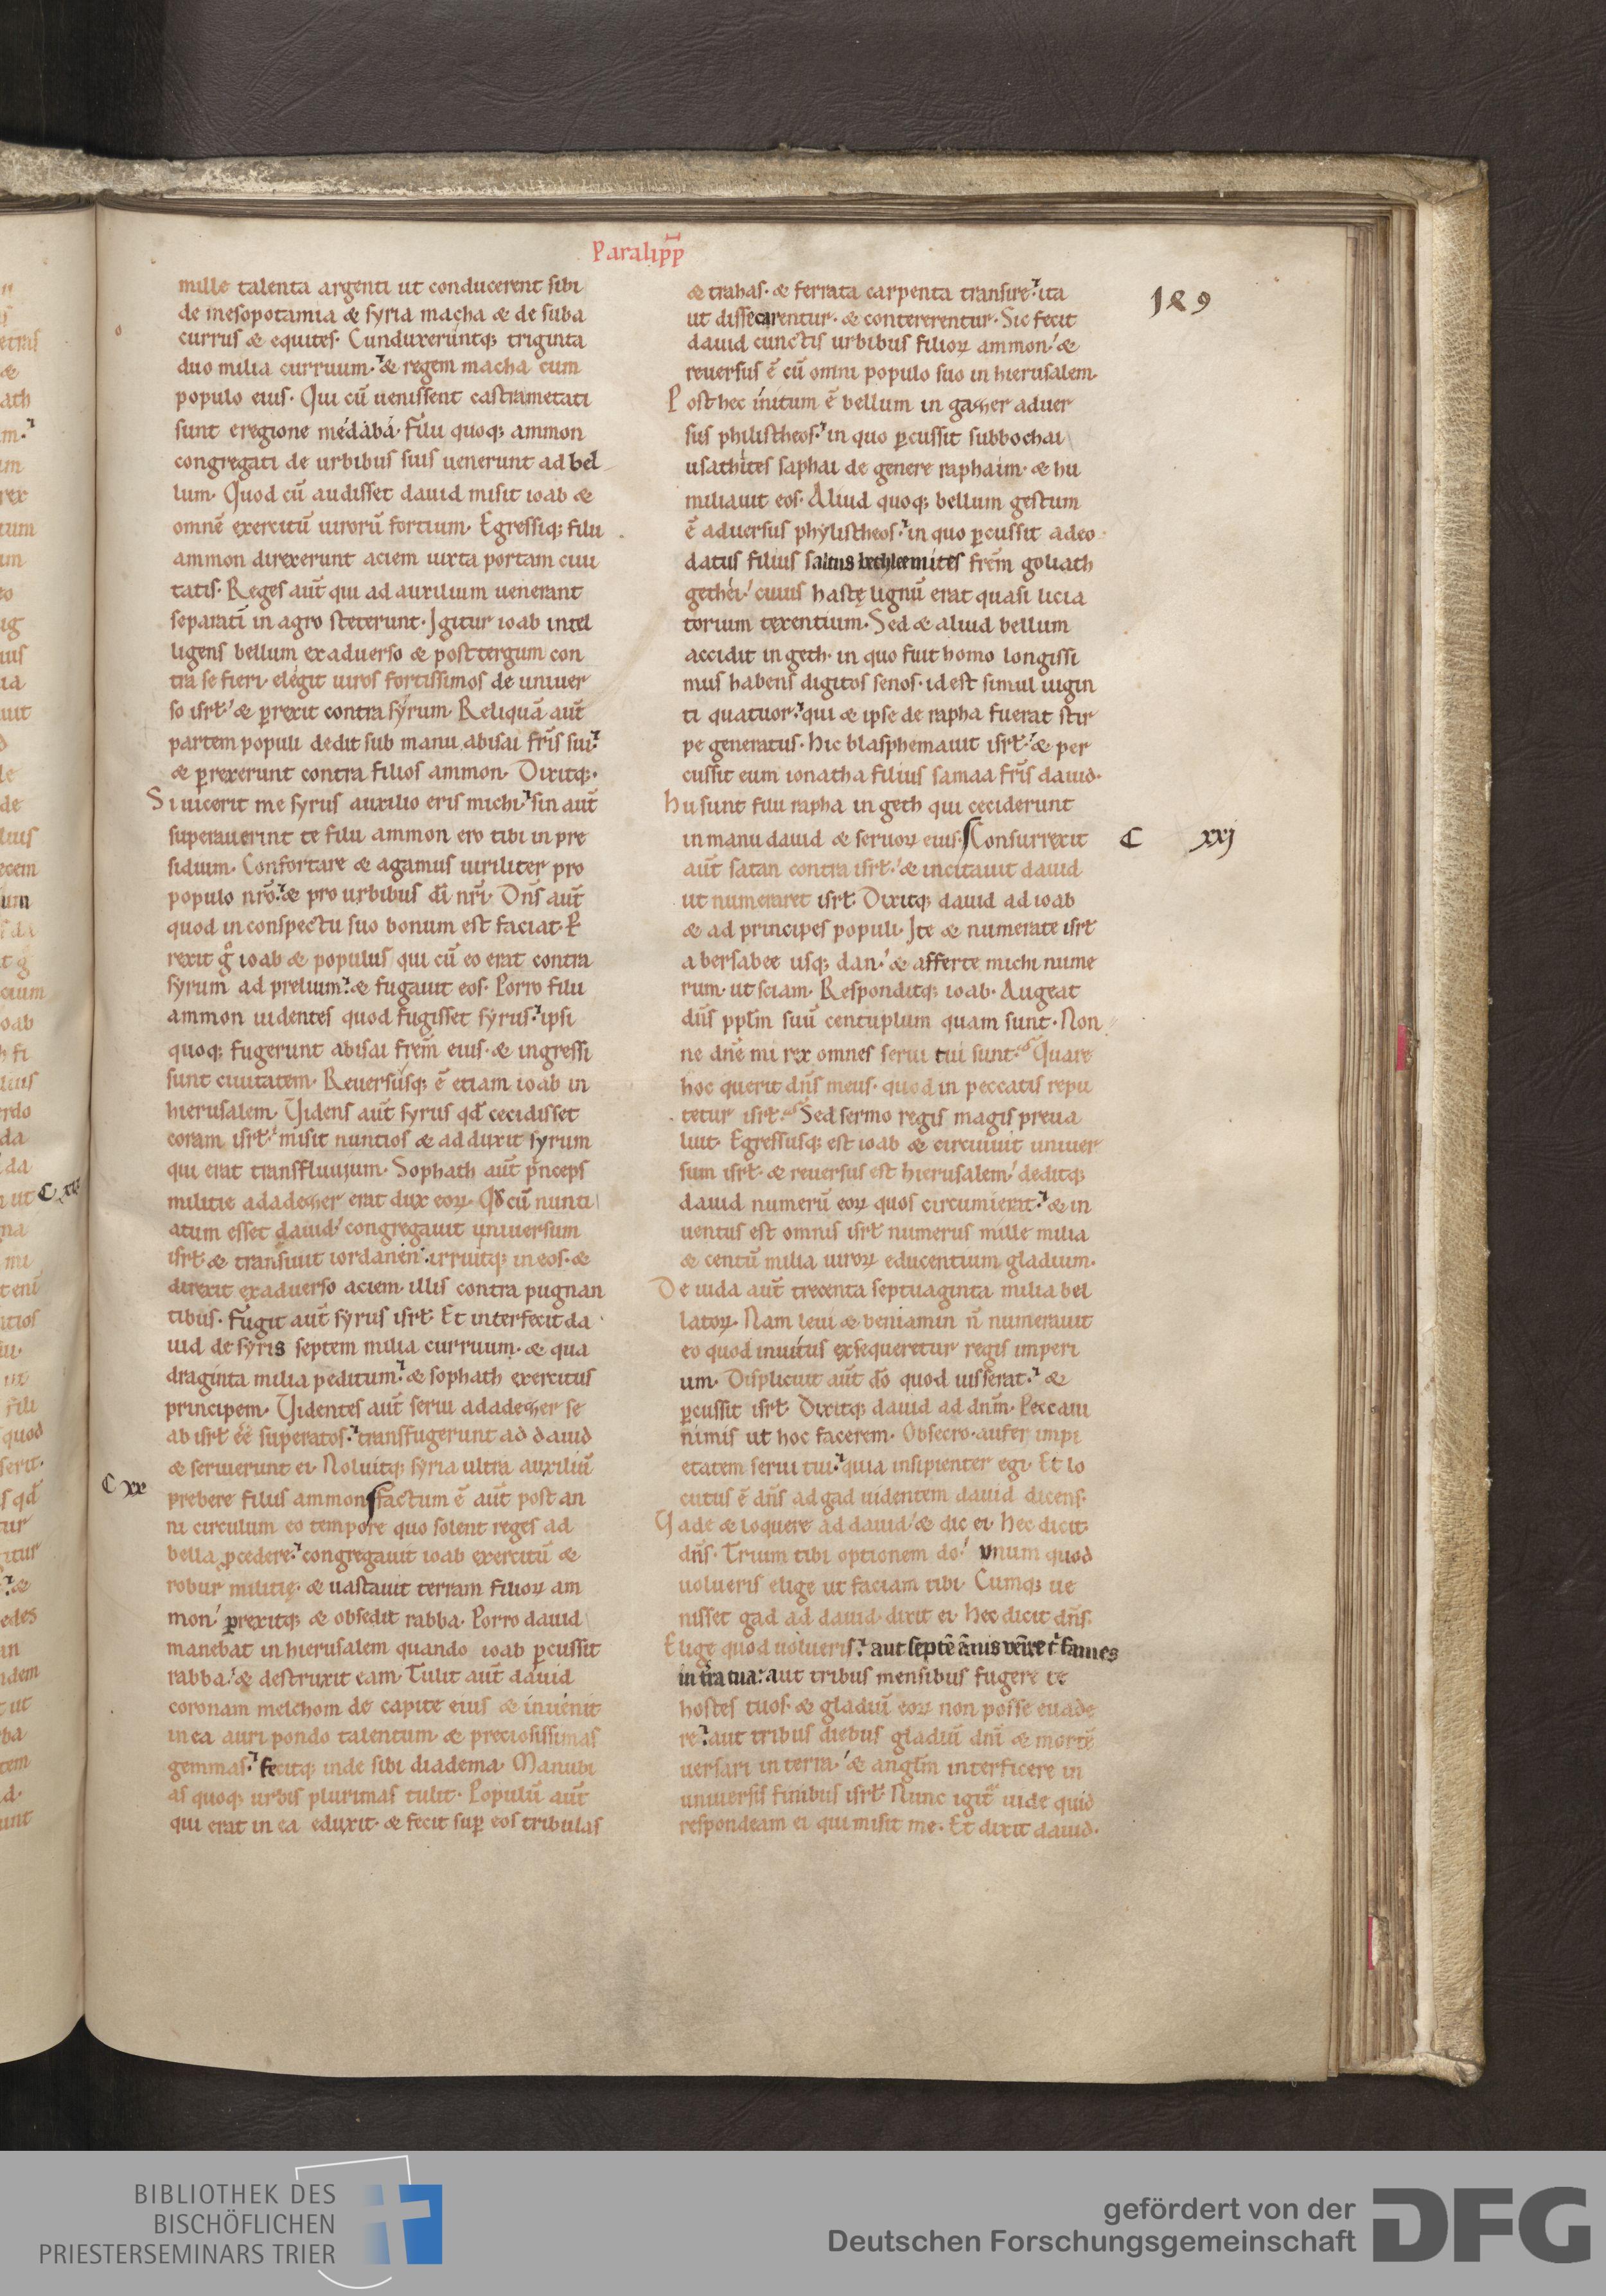 Paralipp̄
189
mille talenta argenti ut conducerent sibi
de mesopotamia & syria macha & de suba
currus & equites. Cunduxeruntq; triginta
duo milia curruum. & regem macha cum
populo eius. Qui cū uenissent castrametati
sunt eregione medaba. Filii quoq; ammon
congregati de urbibus suis uenerunt ad bel
lum. Quod cū audisset dauid misit ioab &
omnē exercitū uirorū fortium. Egressiq; filii
ammon direxerunt aciem iuxta portam ciui
tatis. Reges aūt qui ad auxilium uenerant
separatī in agro steterunt. Igitur ioab intel
ligens bellum exaduerso & posttergum con
tra se fieri. elegit uiros fortissimos de uniuer
so isrł & p̱rexit contra syrum. Reliquā aūt
partem populi dedit sub manu abisai fr̄is sui.
& p̱rexerunt contra filios ammon. Dixitq;.
Si uicerit me syrus auxilio eris michi. sin aūt
superauerint te filii ammon ero tibi in pre
sidium. Confortare & agamus uiriliter pro
populo nr̄o. & pro urbibus dī nr̄i. Dn̄s aūt
quod in conspectu suo bonum est faciat. P̱
rexit gͦ ioab & populus qui cū eo erat contra
syrum ad prelium. & fugauit eos. Porro filii
ammon uidentes quod fugisset syrus. ipsi
quoq; fugerunt abisai frēm eius. & ingressi
sunt ciuitatem. Reuersusq; ē etiam ioab in
hierusalem. Videns aūt syrus qđ cecidisset
coram isrł misit nuntios & adduxit syrum
qui erat transfluuium. Sophath aūt pⁱnceps
militie adadezer erat dux eoꝝ. Qđ cū nunti
atum esset dauid. congregauit uniuersum
isrł & transiuit iordanen. irruitq; in eos. &
direxit exaduerso aciem. illis contra pugnan
tibus. Fugit aūt syrus isrł. Et interfecit da
uid de syris septem milia curruum. & qua
draginta milia peditum. & sophath exercitus
principem. Videntes aūt serui adadezer se
ab isrł ēē superatos. transfugerunt ad dauid
& seruierunt ei. Noluitq; syria ultra auxiliū
C xx
prebere filiis ammon. Factum ē aūt post an
ni circulum eo tempore quo solent reges ad
bella p̱cedere. congregauit ioab exercitū &
robur militię. & uastauit terram filioꝝ am
mon. p̱rexitq; & obsedit rabba. Porro dauid
manebat in hierusalem quando ioab p̱cussit
rabba. & destruxit eam. Tulit aūt dauid
coronam melchom de capite eius & inuenit
in ea auri pondo talentum & preciosissimas
gemmas. fecitq; inde sibi diadema. Manubi
as quoq; urbis plurimas tulit. Populū aūt
qui erat in ea eduxit. & fecit sup̱ eos tribulas
& trahas. & ferrata carpenta transire. ita
ut dissecarentur. & contererentur. Sic fecit
dauid cunctis urbibus filioꝝ ammon. &
reuersus ē cū omni populo suo in hierusalem.
Post hec initum ē bellum in gazer aduer
sus philistheos. in quo p̱cussit subbochai
usathites saphai de genere raphaim. & hu
miliauit eos. Aliud quoq; bellum gestum
ē aduersus phylistheos. in quo p̱cussit adeo
datus filius saltus bethleemites frēm goliath
gethei. cuius hastę lignū erat quasi licia
torium texentium. Sed & aliud bellum
accidit in geth. in quo fuit homo longissi
mus habens digitos senos. id est simul uigin
ti quatuor. qui & ipse de rapha fuerat stir
pe generatus. Hic blasphemauit isrł. & per
cussit eum ionatha filius samaa fr̄is dauid.
Hii sunt filii rapha in geth qui ceciderunt
in manu dauid & seruoꝝ eius. Consurrexit
C xxj
aūt satan contra isrł. & incitauit dauid
ut numeraret isrł. Dixitq; dauid ad ioab
& ad principes populi. Ite & numerate isrł
a bersabee usq; dan. & afferte michi nume
rum. ut sciam. Responditq; ioab. Augeat
dn̄s ppłm suū centuplum quam sunt. Non
ne dn̄e mi rex omnes serui tui sunt. Quare
hoc querit dn̄s meus. quod in peccatis repu
tetur isrł. Sed sermo regis magis preua
luit. Egressusq; est ioab & circuiuit uniuer
sum isrł. & reuersus est hierusalem. deditq;
dauid numerū eoꝝ quos circumierat. & in
uentus est omnis isrł numerus mille milia
& centū milia uiroꝝ educentium gladium.
De iuda aūt trecenta septuaginta milia bel
latoꝝ. Nam leui & beniamin n̄ numerauit
eo quod inuitus exsequeretur regis imperi
um. Displicuit aūt dō quod iusserat. &
p̱cussit isrł. Dixitq; dauid ad dn̄m. Peccaui
nimis ut hoc facerem. Obsecro. aufer impi
etatem serui tui. quia insipienter egi. Et lo
cutus ē dn̄s ad gad uidentem dauid dicens.
Vade & loquere ad dauid. & dic ei. Hec dicit
dn̄s. Trium tibi optionem do. unum quod
uolueris elige ut faciam tibi. Cumq; ue
nisset gad ad dauid. dixit ei. Hec dicit dn̄s.
Elige quod uolueris. aut septē ānis fames
in tr̄a tua. aut tribus mensibus fugere te
hostes tuos. & gladiū eoꝝ non posse euade
re. aut tribus diebus gladiū dn̄i & mortē
uersari in terra. & angłm interficere in
uniuersis finibus isrł. Nunc igit̄ uide quid
respondeam ei qui misit me. Et dixit dauid.
BIBLIOTHEK DES
BISCHÖFLICHEN
PRIESTERSEMINARS TRIER
gefördert von der
Deutschen Forschungsgemeinschaft
DFG